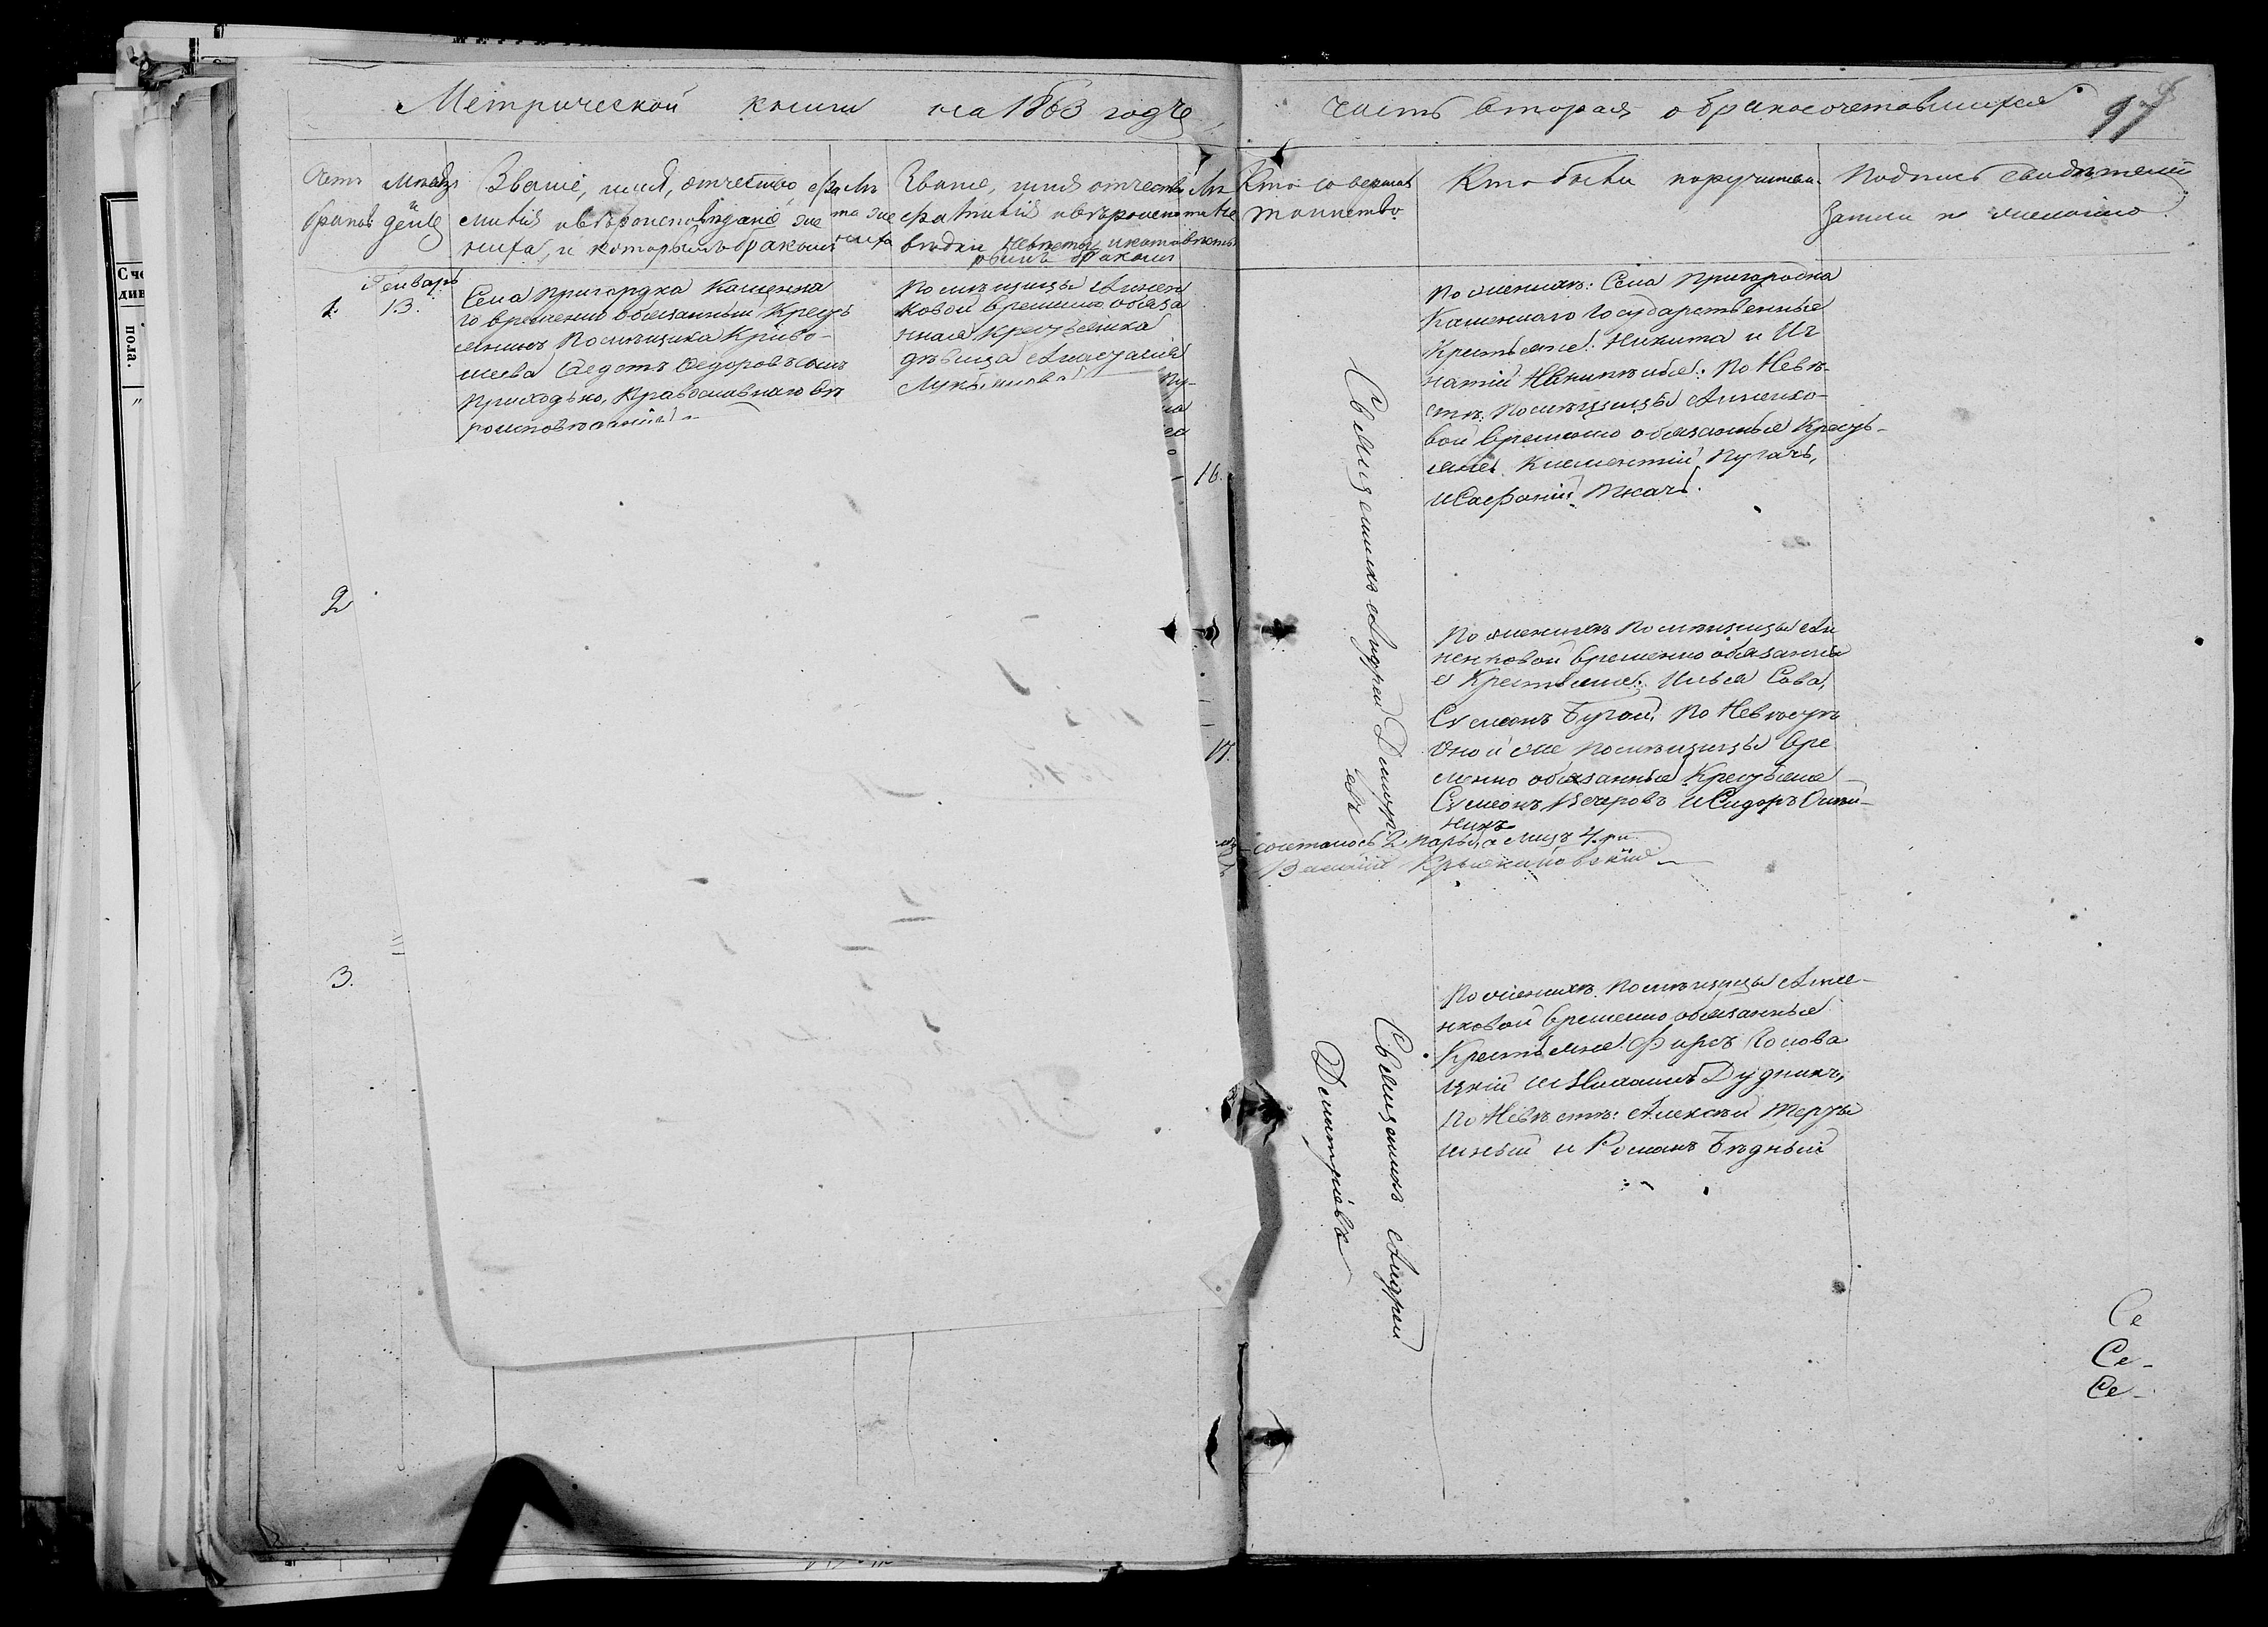 Метрической книги на 1863 годъ
часть вторая о бракосочетавшихся
97
Счетъ браковъ
Месяцъ и день
Званіе, имя, отчество, фа
милія и вѣроисповѣданіе же
ниха, и которымъ бракомъ
Лѣ
та же
ниха
Званіе, имя отчество
фамилія и вѣроиспо
вѣдан невѣсты, и кото
рымъ бракомъ
Лѣ
та не
вѣсты
Кто совершалъ
таинство
Кто были поручители
Подпись свидѣтелей
записи по желанію
1.
Генварь
13.
Села пригородка Каменна
го временно обязанный Кресть
янинъ Помѣщика Криво-
шеева Федотъ Федоровъ сынъ
Приходько, Православнаго вѣ
роисповѣданія
Помѣщицы Аннен
ковой временно обяза
нная крестьянка
дѣвица Анастасія
16.
Священникъ Андрей Димитр
евъ
По женихѣ: Села Пригородка
Каменнаго Государственные
Крестьяне: Никита и Иг
натій По Невѣ-
стѣ: Помѣщицы Анненко-
вой временно обязанные Кресть-
яне Климентій Пугачь,
и Ткачь.
2
17.
По женихѣ Помѣщицы Ан
ненковой временно обязанны
е Крестьяне: Илья Сова,
Симеонъ Бугай, По Невѣстѣ
оной же помѣщицы вре
менно обязанные Крестьяне
Симеонъ и Сидоръ
сочеталось 2 пары, а лицъ 4.ри
3.
Священникъ Андрей
Димитріевъ
По женихѣ Помѣщицы Анне-
нковой временно обязанные
Крестьяне: Фирсъ Голова
цкій и Дудникъ,
По Невѣстѣ: Алексѣй
и Романъ Бѣдный
Се
Се-
Се-
Сче
див
пола.